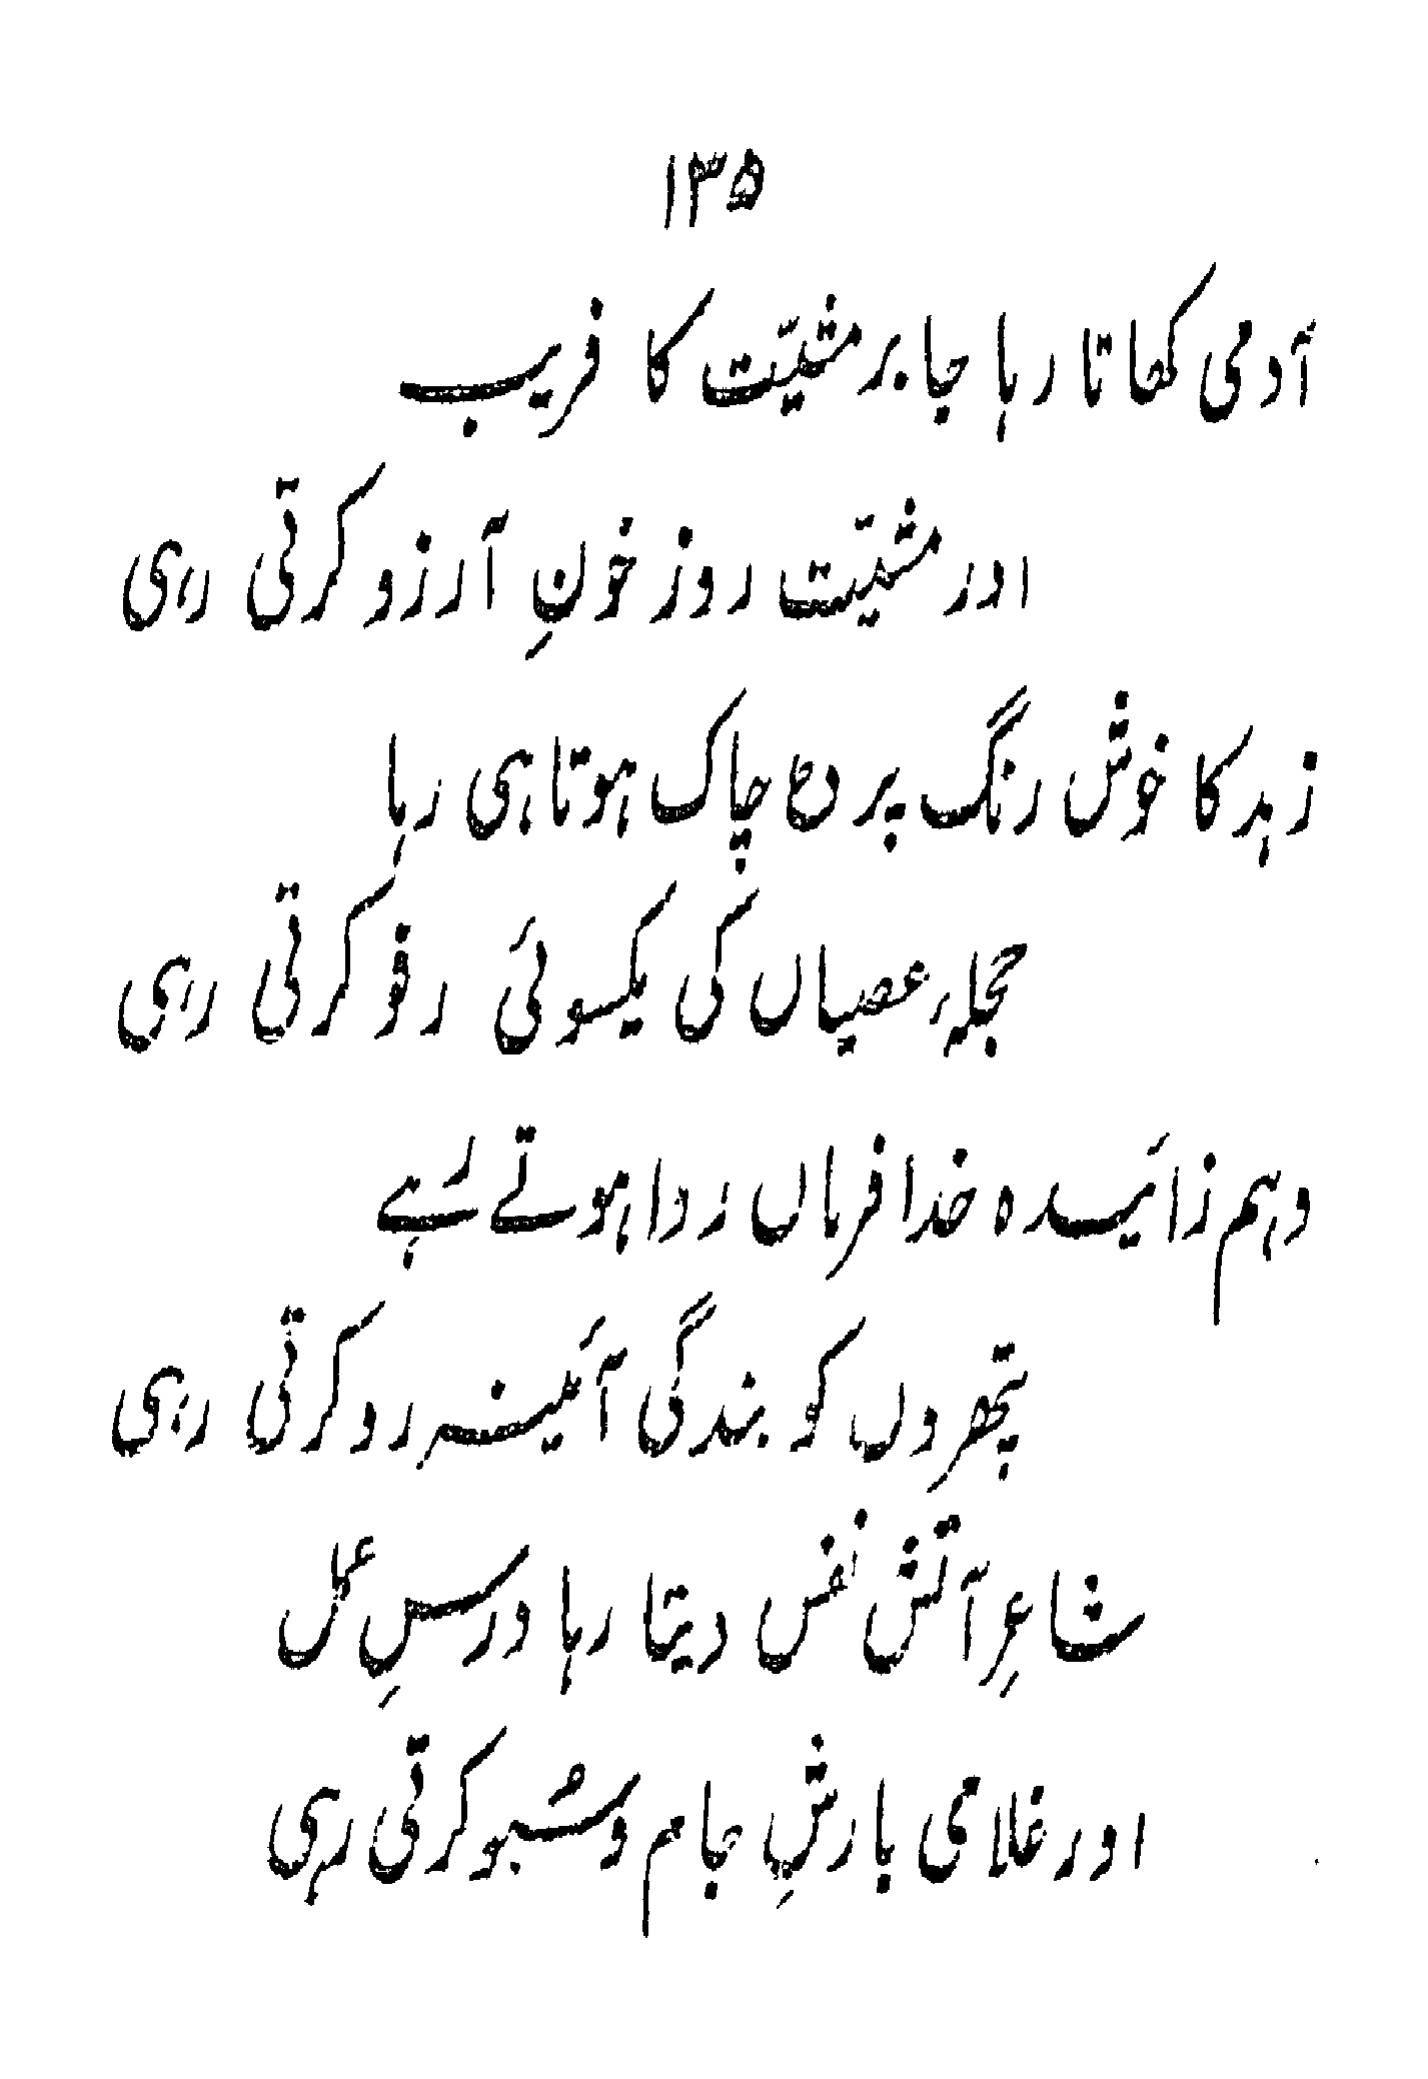 ۱۳۵
آدمی کھاتا رہا جابر مشیّت کا فریب
اور مشیّت روز خونِ آرزو کرتی رہی
زہد کا خوش رنگ پردہ چاک ہوتا ہی رہا
حجلہء عصیاں کی یکسوئی رفو کرتی رہی
وہم زائیدہ خدا فرماں روا ہوتے رہے
پتھروں کو بندگی آئینہ رو کرتی رہی
شاعرِ آتش نفس دیتا رہا درسِ عمل
اور غلامی بارشِ جام و سُبو کرتی رہی